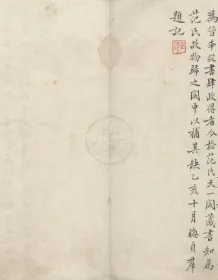 為舊本從書肆得者今檢范氏天一閣藏書知為
范氏故物歸之閣中以補其缺乙亥十月梅貞羣
題記